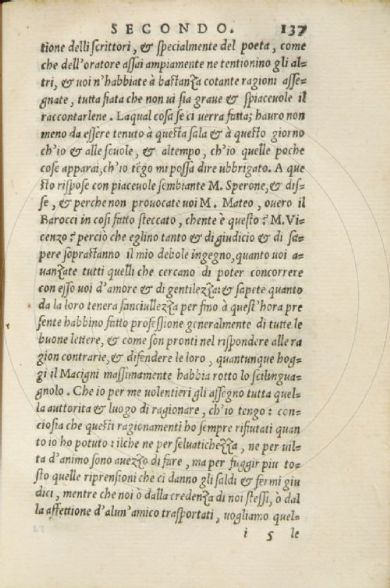 SECONDO. 137
tione delli scrittori, & spetialmente del poeta, come
che dell'oratore assai ampiamente ne tentionino gli al-
tri, & uoi n'habbiate à bastanza cotante ragioni asse-
gnate, tutta fiata che non ui sia graue & spiaceuole il
raccontarlene. Laqual cosa se ci uerra fatta; hauro non
meno da essere tenuto à questa sala & à questo giorno
ch'io & alle scuole, & al tempo, ch'io quelle poche
cose apparai, ch'io tẽgo mi possa dire ubbrigato. A que
sto rispose con piaceuole sembiante M. Sperone, & dis-
se, & perche non prouocate uoi M. Mateo, ouero il
Barocci in cosi fatto steccato, chente è questo? M. Vi-
cenzo? perciò che eglino tanto & di giudicio & di sa-
pere soprastanno il mio debole ingegno, quanto uoi a-
uanzate tutti quelli che cercano di poter concorrere
con esso uoi d'amore & di gentilezza: & sapete quanto
da la loro tenera fanciullezza per fino à quest'hora pre
sente habbino fatto professione generalmente di tutte le
buone lettere, & come son pronti nel rispondere alle ra
gion contrarie, & difendere le loro, quantunque hog-
gi il Macigni massimamente habbia rotto lo scilingua-
gnolo. Che io per me uolentieri gli assegno tutta quel-
la auttorita & luogo di ragionare, ch'io tengo: con-
ciosia che questi ragionamenti ho sempre rifiutati quan
to io ho potuto: ilche ne per seluatichezza, ne per uil-
ta d'animo sono auezzo di fare, ma per fuggir piu to-
sto quelle riprensioni che ci danno gli saldi & fermi giu
dici, mentre che noi ò dalla credenza di noi stessi, ò dal
la affettione d'alun'amico trasportati, uogliamo quel-
i 5 le